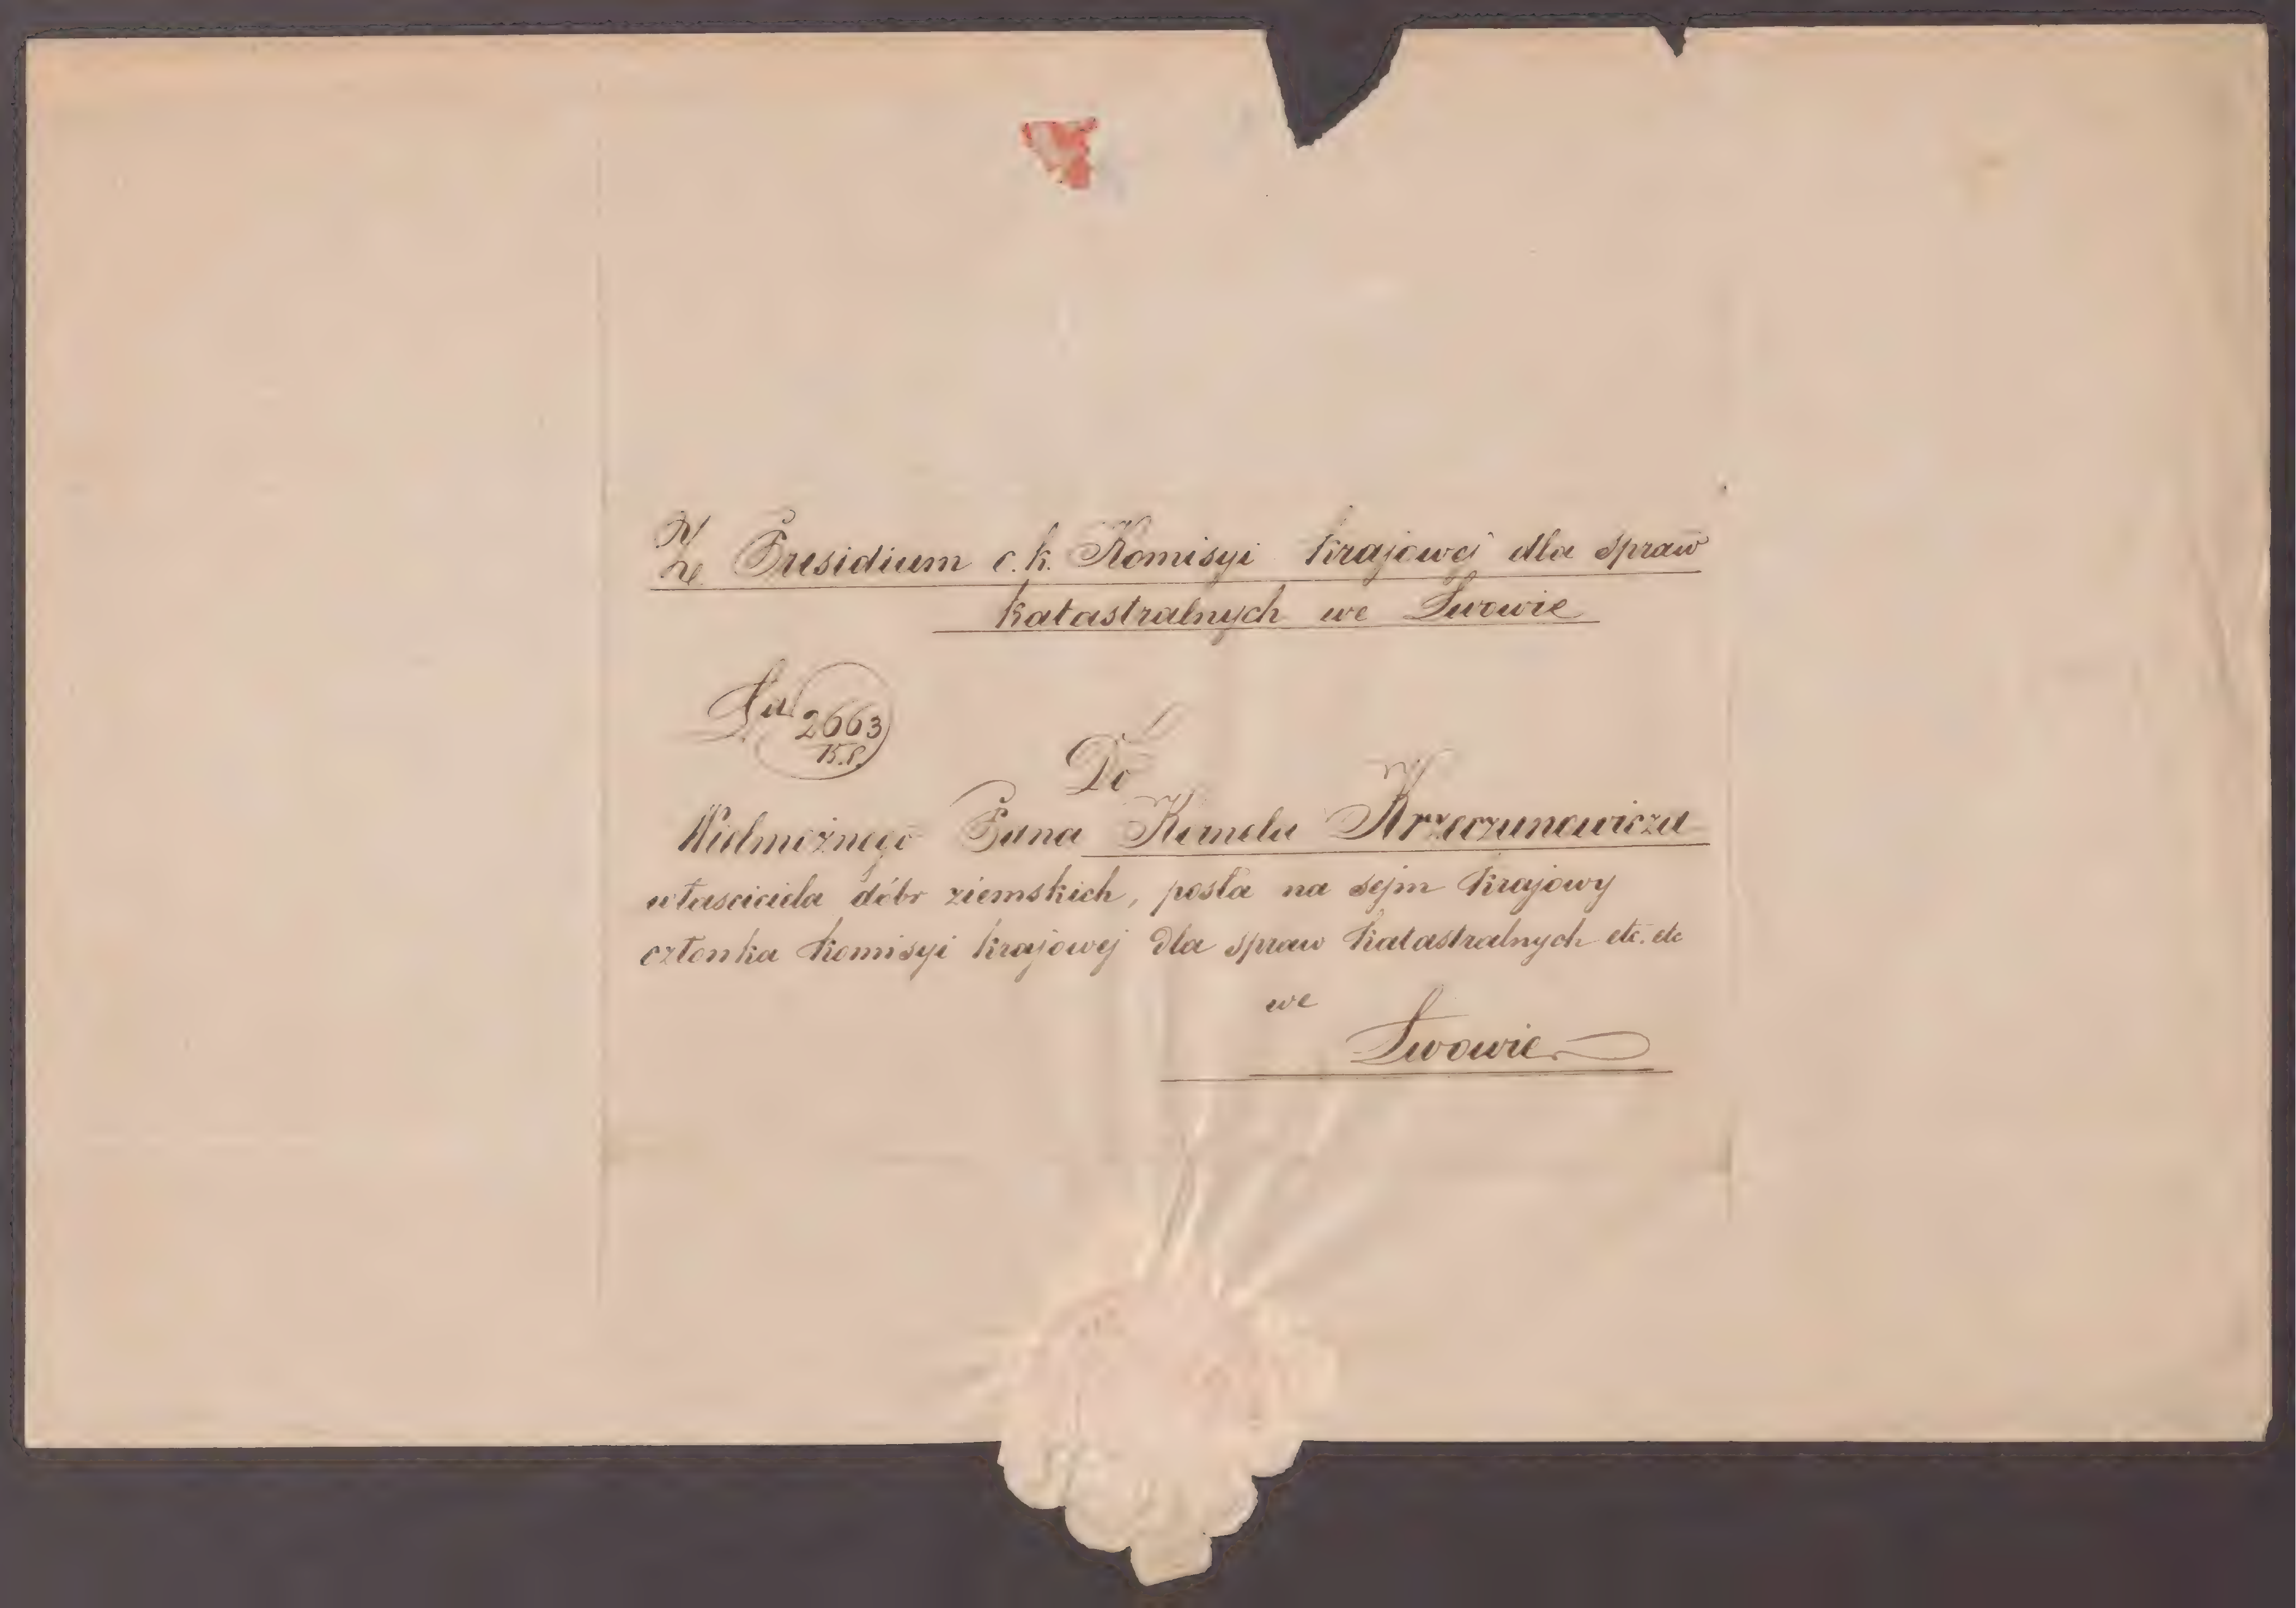 Ze Presidium c. k. Komisyi Krajowej dla spraw
Katastralnych we Lwowie
2663
Do
Wielmożnego Pana Kornela Krzeczunowicza
właściciela dóbr ziemskich, posła na sejm krajowy
członka komisyi krajowej dla spraw katastralnych etc. etc
we
Lwowie